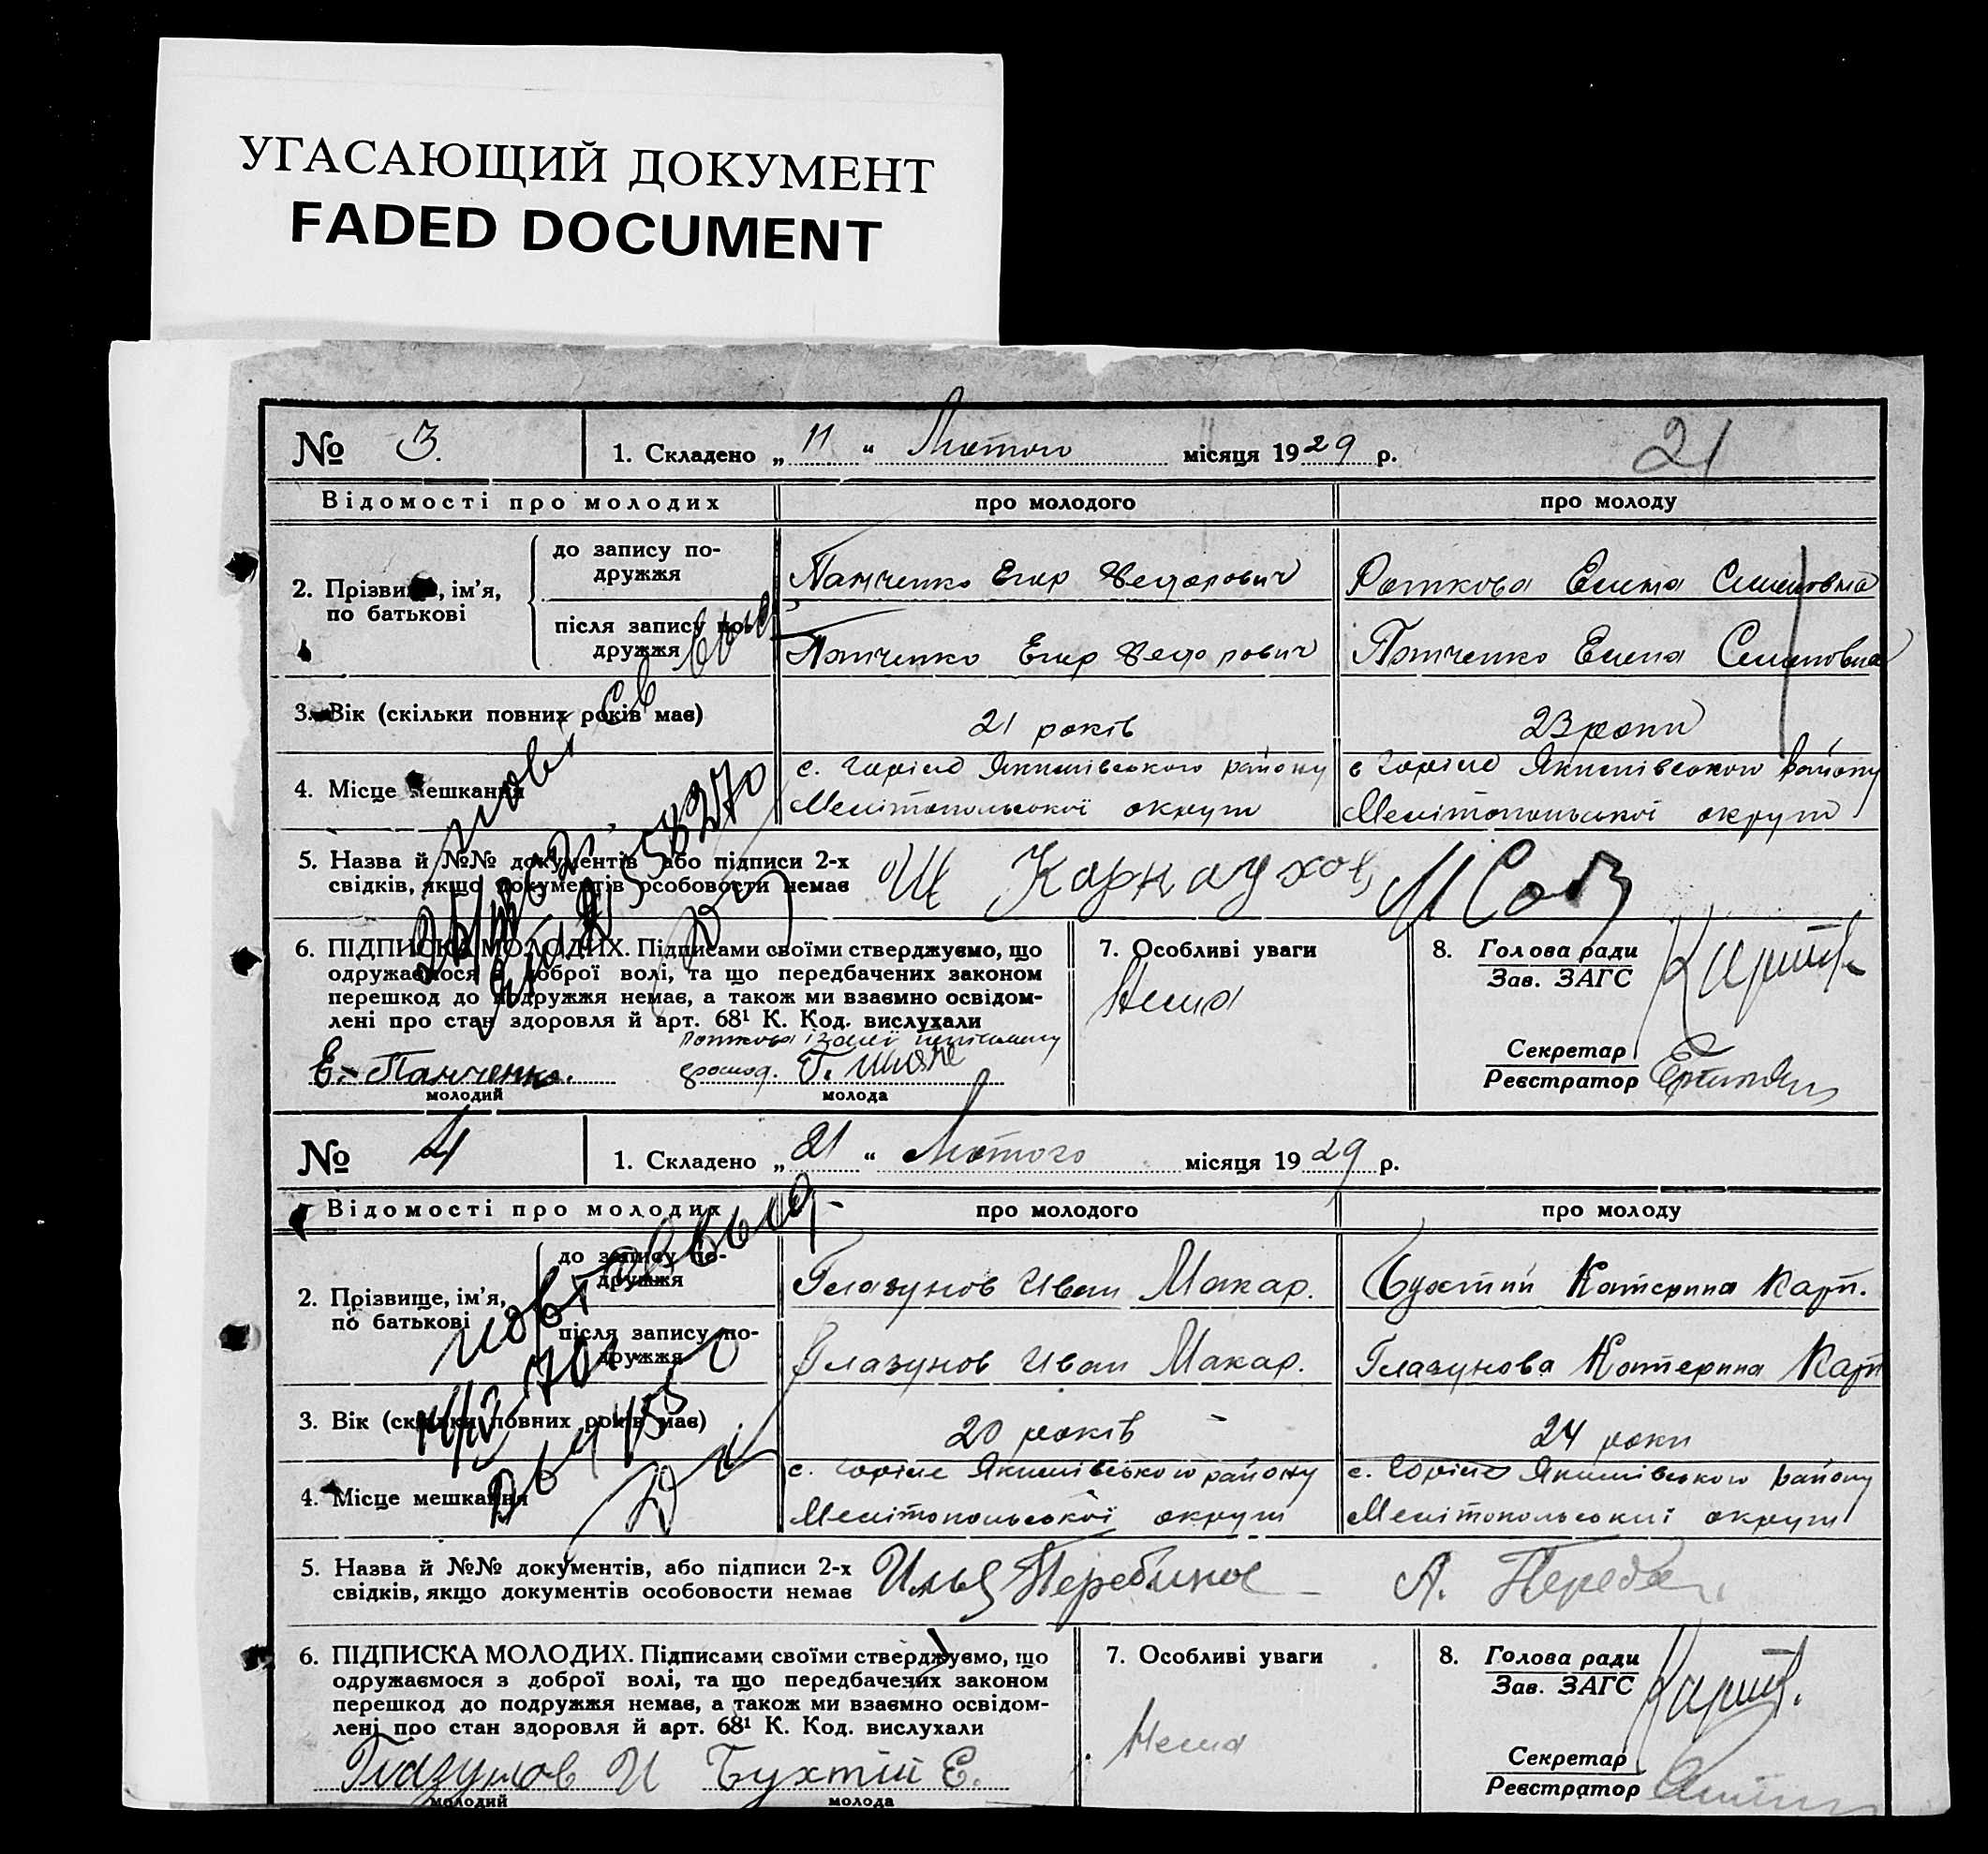 УГАСАЮЩИЙ ДОКУМЕНТ
FADED DOCUMENT
№ 3. 1. Складено „ 11 “ Лютого місяця 1929 р. 21
Відомості про молодих про молодого про молоду
2. Прізвище, ім'я, по батькові
до запису подружжя
Панченко Егор Федорович Роткова Елена Семеновна
після запису подружжя
Панченко Егор Федорович Панченко Елена Семеновна
3. Вік (скільки повних років має) 21 років 23 роки
4. Місце мешкання
с. Горіле Якимівського району с Горіле Якимівського району
Мелітопольської округи Мелітопольської округи
58270
5. Назва й №№ документів або підписи 2-х
свідків, якщо документів особовости немає
Карнаухов
6. ПІДПИСКА МОЛОДИХ. Підписами своїми стверджуємо, що
одружаємося з доброї волі, та що передбачених законом
перешкод до подружжя немає, а також ми взаємно освідом-
лені про стан здоров<wbr>ля й арт. 68¹ К. Код. вислухали
Роткова
Е. Панченко.
молодий молода
7. Особливі уваги
Нема
8. Голова ради
Зав. ЗАГС
Секретар
Реєстратор
№ 4 1. Складено „ 21 “ Лютого місяця 1929 р.
Відомості про молодих про молодого про молоду
2. Прізвище, ім'я, по батькові
до запису подружжя
Глазунов Иван Макар. Бухтий Катерина Карп.
після запису подружжя
Глазунов Иван Макар. Глазунова Катерина Карп
3. Вік (скільки повних років має) 20 років 24 роки
4. Місце мешкання
с. Горіле Якимівського району с. Горіле Якимівського району
Мелітопольської округи Мелітопольської округи
5. Назва й №№ документів, або підписи 2-х
свідків, якщо документів особовости немає
Илья А.
6. ПІДПИСКА МОЛОДИХ. Підписами своїми стверджуємо, що
одружаємося з доброї волі, та що передбачених законом
перешкод до подружжя немає, а також ми взаємно освідом-
лені про стан здоровля й арт. 68¹ К. Код. вислухали
Глазунов И Бухтій Е.
молодий молода
7. Особливі уваги
Нема
8. Голова ради
Зав. ЗАГС
Секретар
Реєстратор